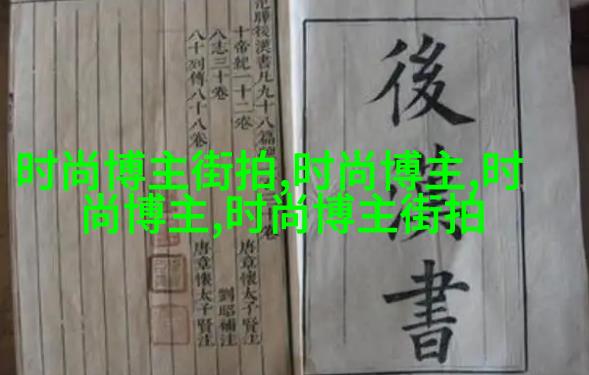 时尚博主街拍,时尚博主,时
尚博主,时尚博主街拍
後漢書
後漢書凡九十八篇
十帝紀一十二卷 唐章懷太子賢注
八志三十卷 劉昭補注
八十列傳八十八卷 唐章懷太子賢注